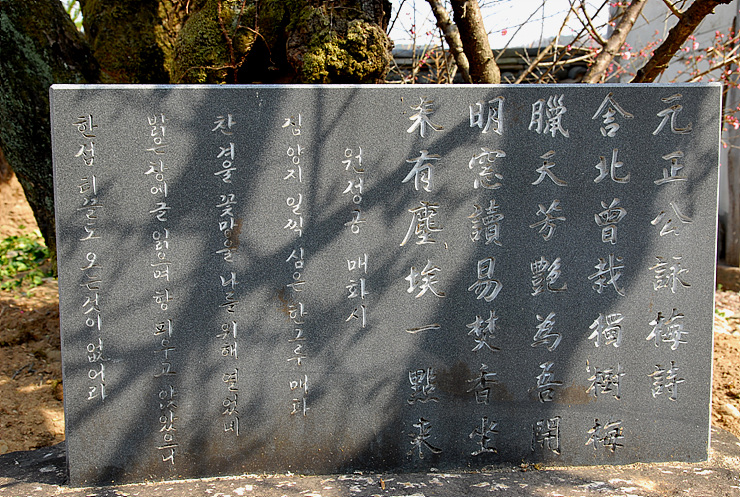 元正公詠梅詩
舍北曾栽獨樹梅
臘天芳艶為吾開
明窓讀易焚香坐
未有塵埃一點来
원정공 매화시
집 양지 일찍 심은 한그루 매화
찬 겨울 꽃망울 나를 위해 열었네
밝은 창에 글 읽으며 향 피우고 앉았으니
한점 티끌도 오는것이 없어라